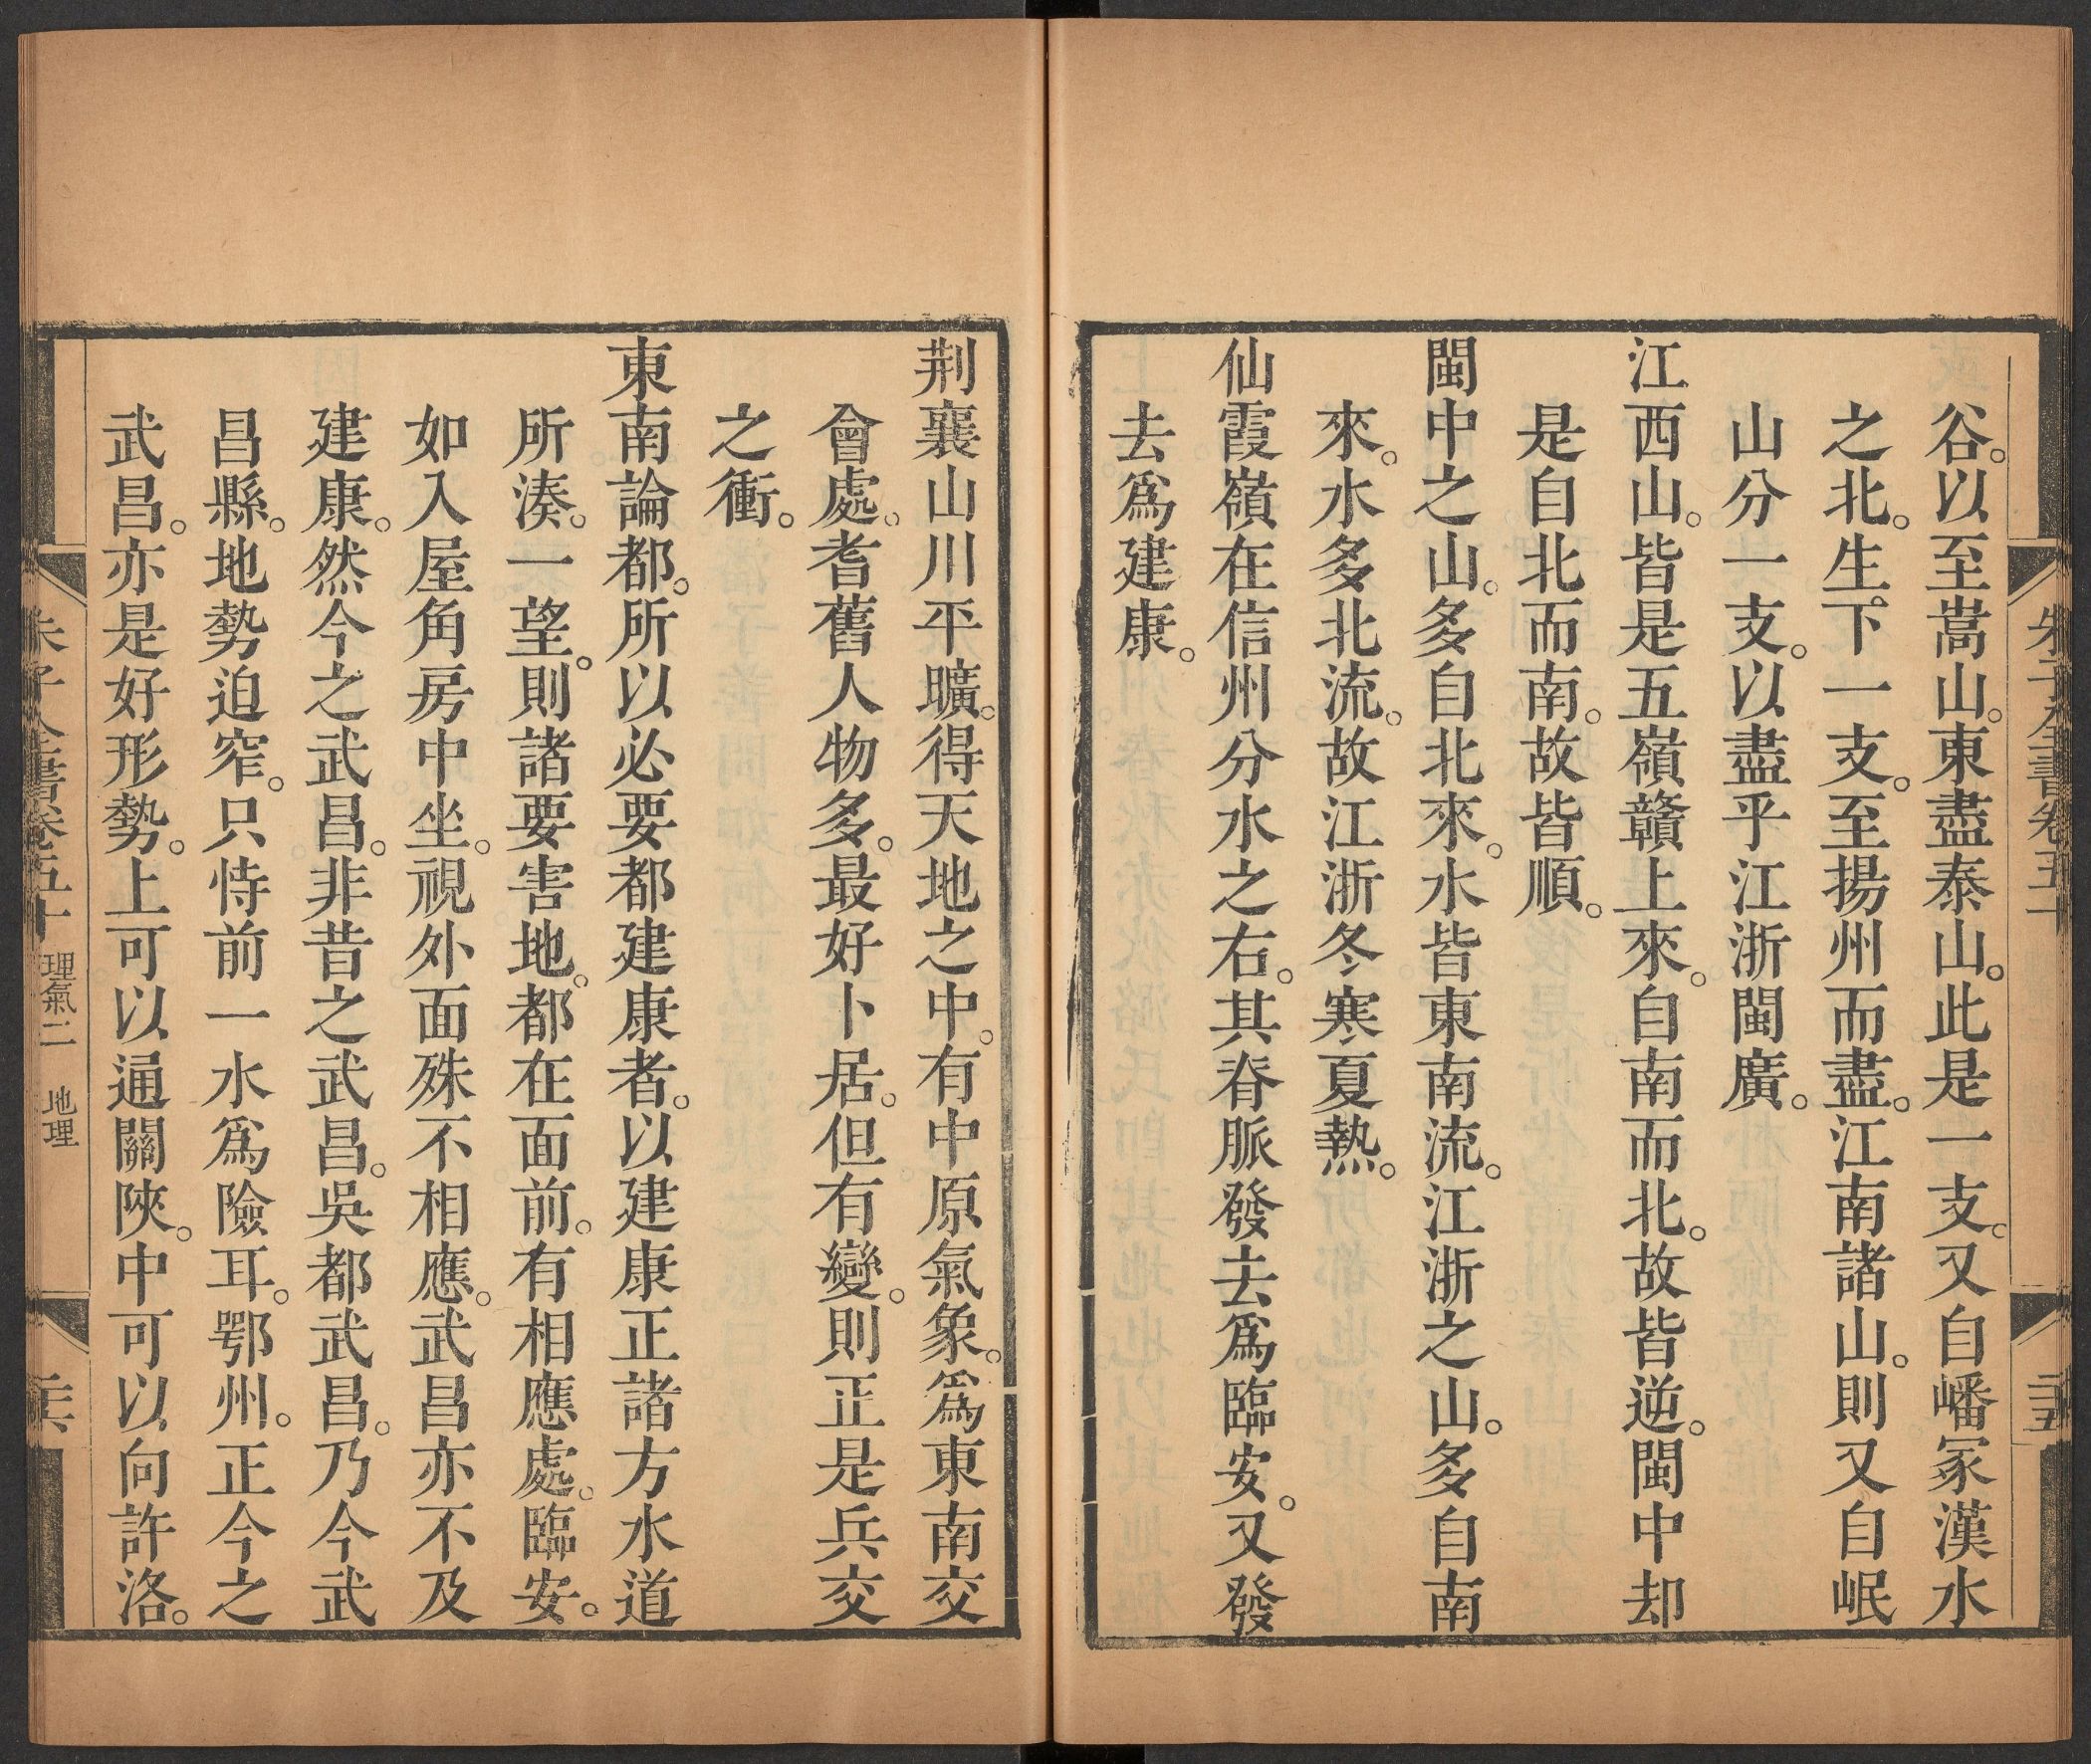 谷。以至嵩山。東盡泰山。此是一支。又自嶓冢漢水
之北。生下一支。至揚州而盡。江南諸山。則又自岷
山分一支。以盡乎江浙閩廣。
江西山。皆是五嶺贛上來。自南而北。故皆逆。閩中却
是自北而南。故皆順。
閩中之山。多自北來。水皆東南流。江浙之山。多自南
來。水多北流。故江浙冬寒夏熱。
仙霞嶺在信州分水之右。其脊脈發去爲臨安。又發
去爲建康。
荆襄山川平曠。得天地之中。有中原氣象。爲東南交
會處。耆舊人物多。最好卜居。但有變。則正是兵交
之衝。
東南論都。所以必要都建康者。以建康正諸方水道
所湊。一望。則諸要害地。都在面前。有相應處。臨安。
如入屋角房中坐。視外面殊不相應。武昌亦不及
建康。然今之武昌。非昔之武昌。吳都武昌。乃今武
昌縣。地勢迫窄。只恃前一水爲險耳。鄂州。正今之
武昌。亦是好形勢。上可以通關陝。中可以向許洛。
朱子全書卷五十 理氣二 地理